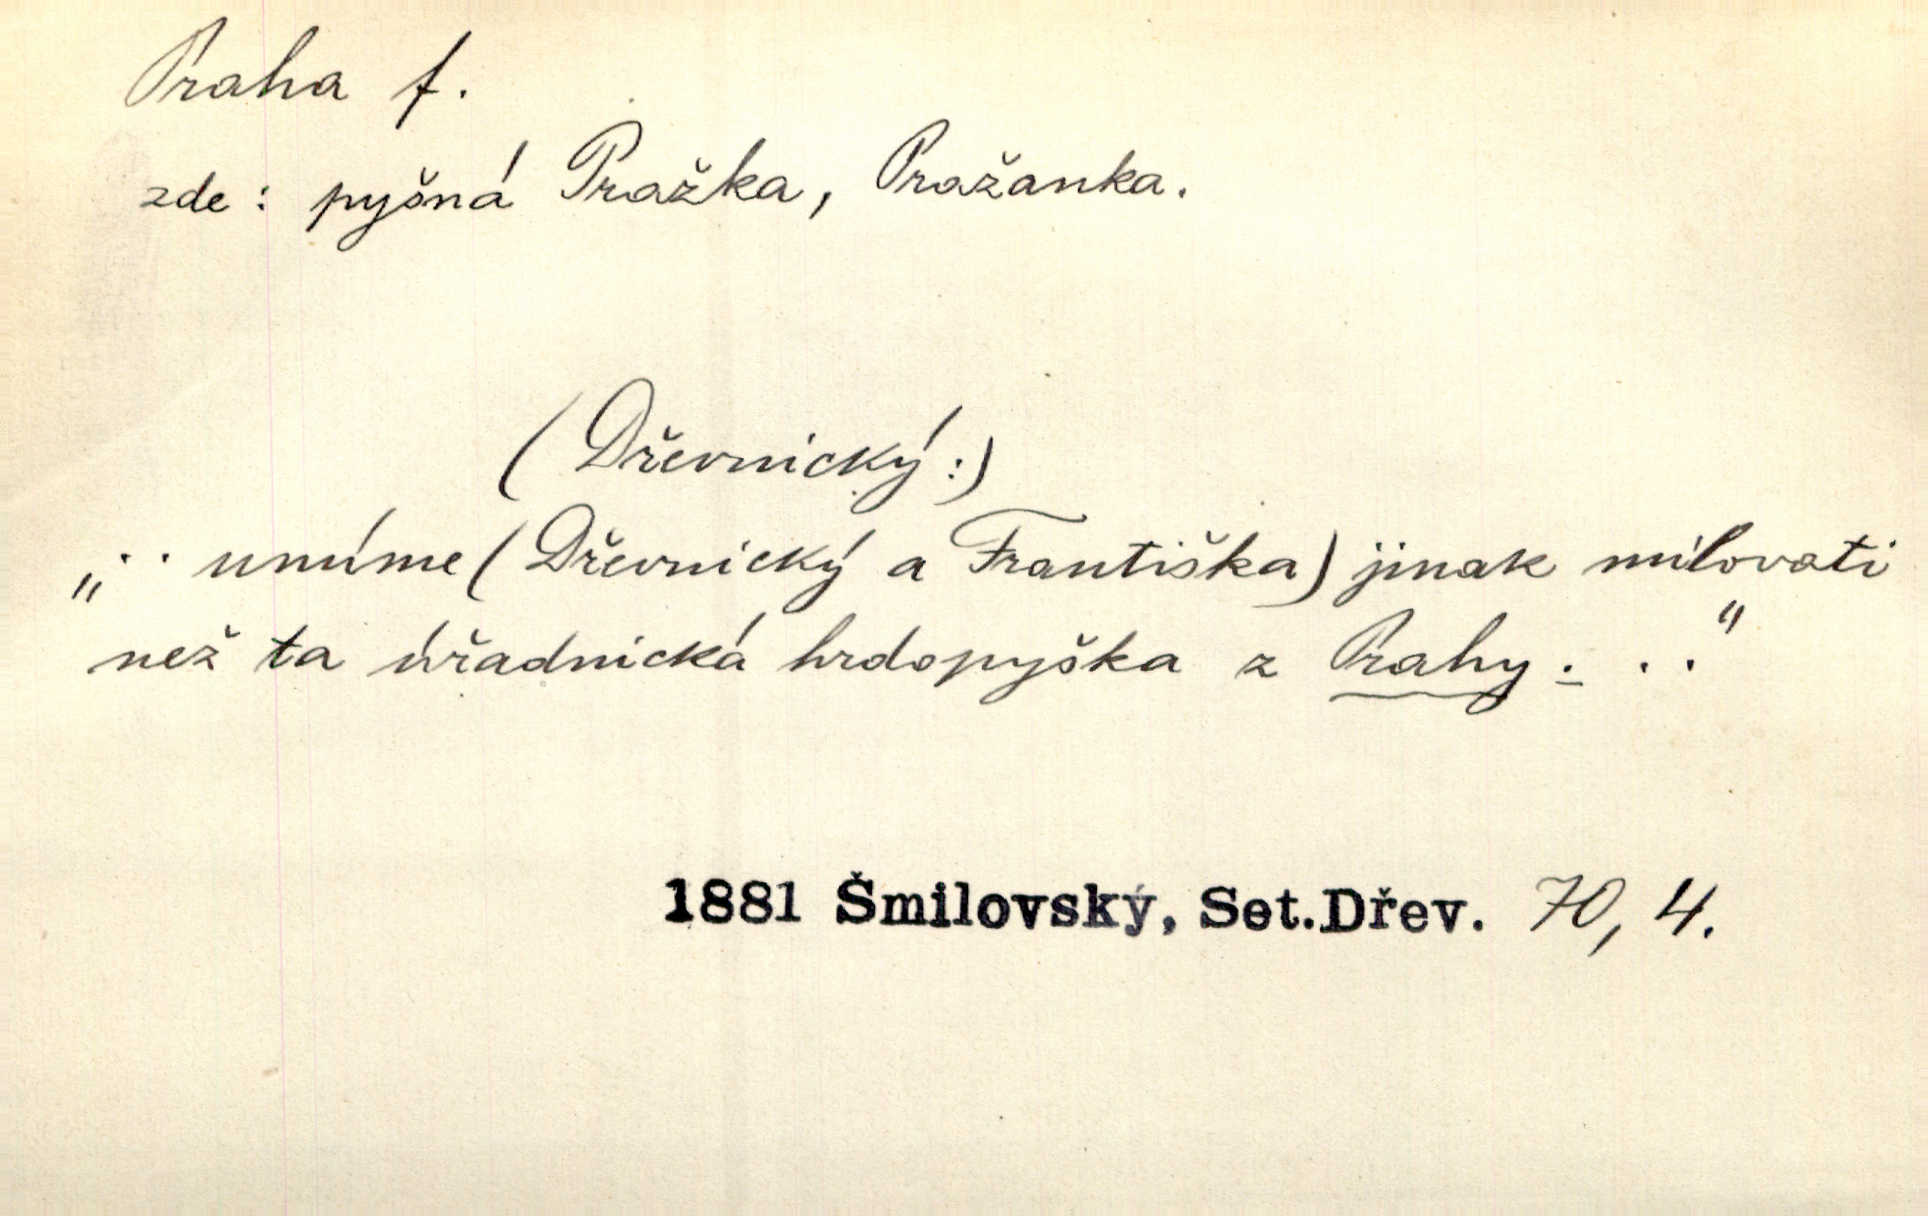 Praha f.
zde: pyšná Pražka, Pražanka.
(Dřevnický:)
„.. umíme (Dřevnický a Františka) jinak milovati
než ta úřadnická hrdopyška z Prahy. . .“
1881 Šmilovský, Set.Dřev. 70, 4.